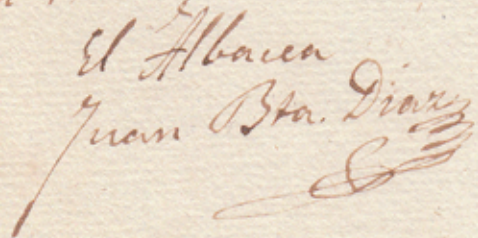 El Albacea
Juan Bta. Diaz